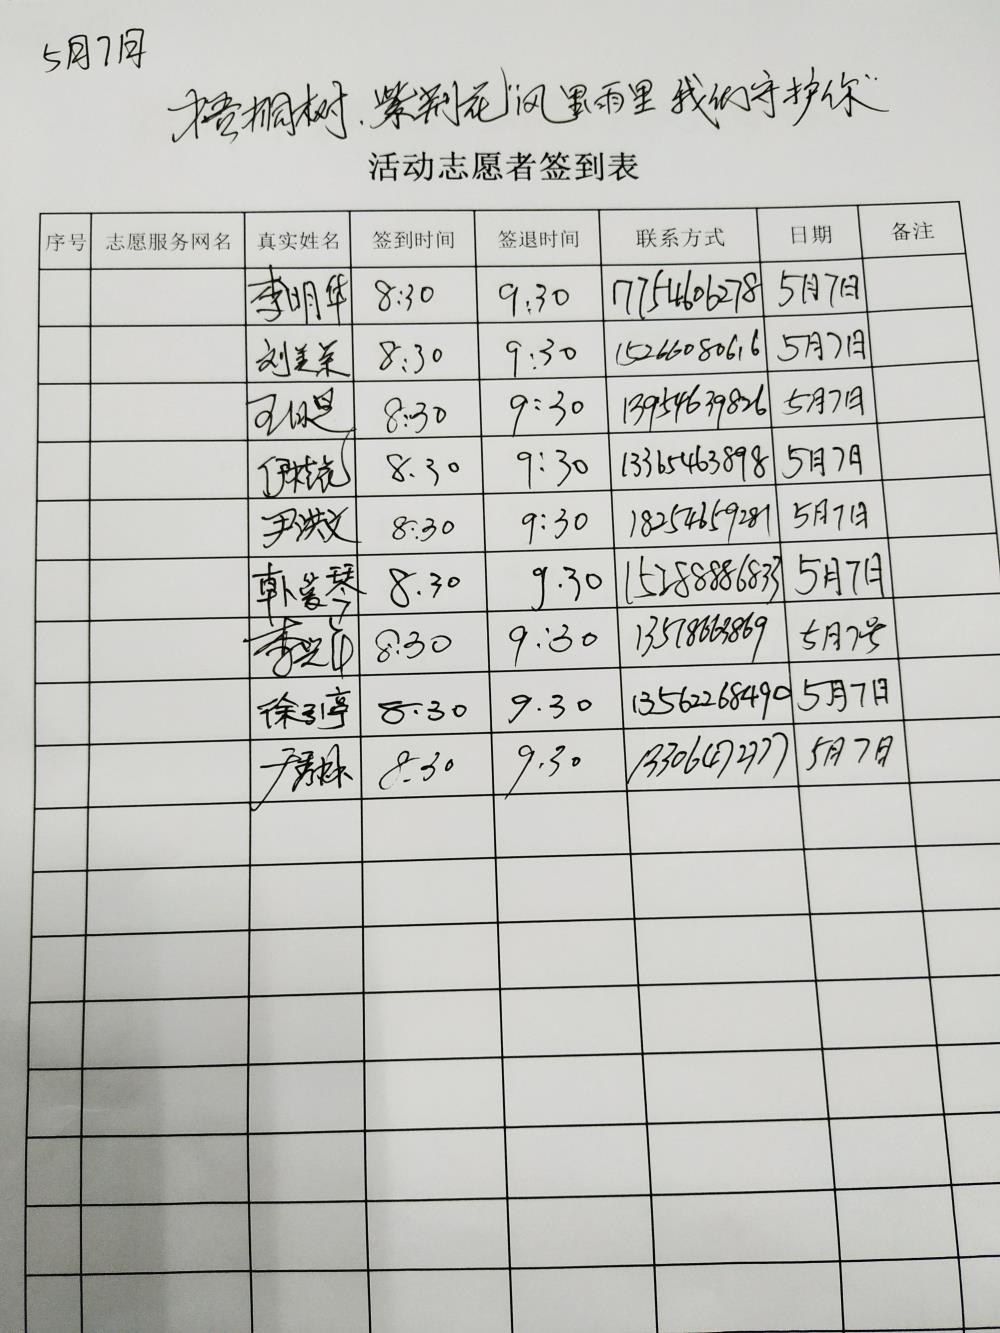 5月7日
梧桐树、紫荆花"风里雨里 我们守护你"
活动志愿者签到表
序号 志愿服务网名 真实姓名 签到时间 签退时间 联系方式 日期 备注
李明华 8:30 9:30 17754606278 5月7日
刘美荣 8:30 9:30 15266080616 5月7日
8:30 9:30 13954639826 5月7日
伊桂花 8.30 9:30 13365463898 5月7日
尹洪文 8:30 9:30 18254659281 5月7日
韩爱琴 8.30 9.30 15288886833 5月7日
8:30 9:30 13578663869 5月7号
徐引亭 8:30 9.30 13562268490 5月7日
8:30 9.30 5月7日